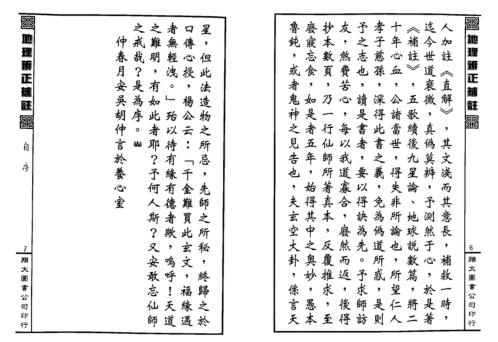 地理辨正補註
人加註《直解》，其文淺而其意長，補救一時，
迄今世道衰微，真偽莫辨，予測然于心，於是著
《補註》，五歌續後九星論、地球說數篇，將二
十年心血，公諸當世，得失非所論也，所望仁人
孝子慈孫，深得此書之義，免為偽道所惑，是則
予之志也，讀是書者，要以得訣為先。予求師訪
友，煞費苦心，每以我道寡合，廢然而返，後得
抄本數頁，乃一行仙師所著真本，反覆推求，至
廢寢忘食，如是者五年，始得其中之奧妙，愚本
魯鈍，或者鬼神之見告也，夫玄空大卦，係言天
6
翔大圖書公司印行
星，但此法造物之所忌，先師之所秘，終歸之於
口傳心授，楊公云：「千金難買此玄文，福緣遇
者無輕洩。」殆以待有緣有德者歟，嗚呼！天道
之難明，有如此者耶？予何人斯？又安敢忘仙師
之戒哉？是為序。
仲春月安吳胡仲言於養心室
地理辨正補註
自序
7
翔大圖書公司印行